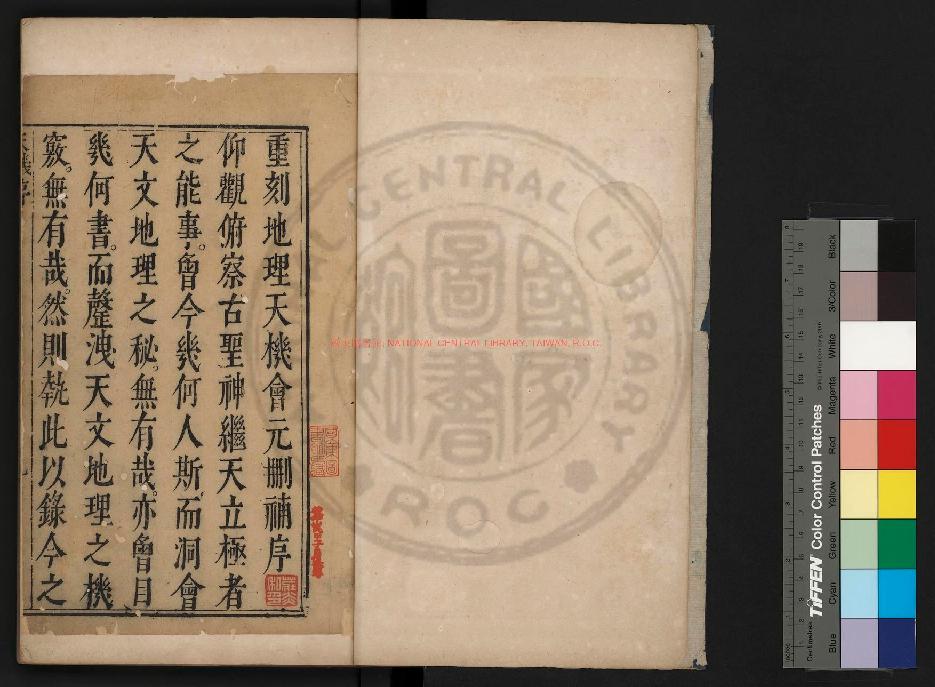 重刻地理天機會元刪補序
仰觀俯察古聖神繼天立極者
之能事。曾今幾何人斯而洞會
天文地理之秘。無有哉。亦曾目
幾何書。而罄洩天文地理之機
竅。無有哉。然則執此以錄今之
NATIONAL CENTRAL LIBRARY, TAIWAN, R.O.C.
CENTRAL LIBRARY
ROC
國家圖書
TIFFEN Color Control Patches
Centimetres
Blue
Cyan
Green
Yellow
Red
Magenta
White
3/Color
Black